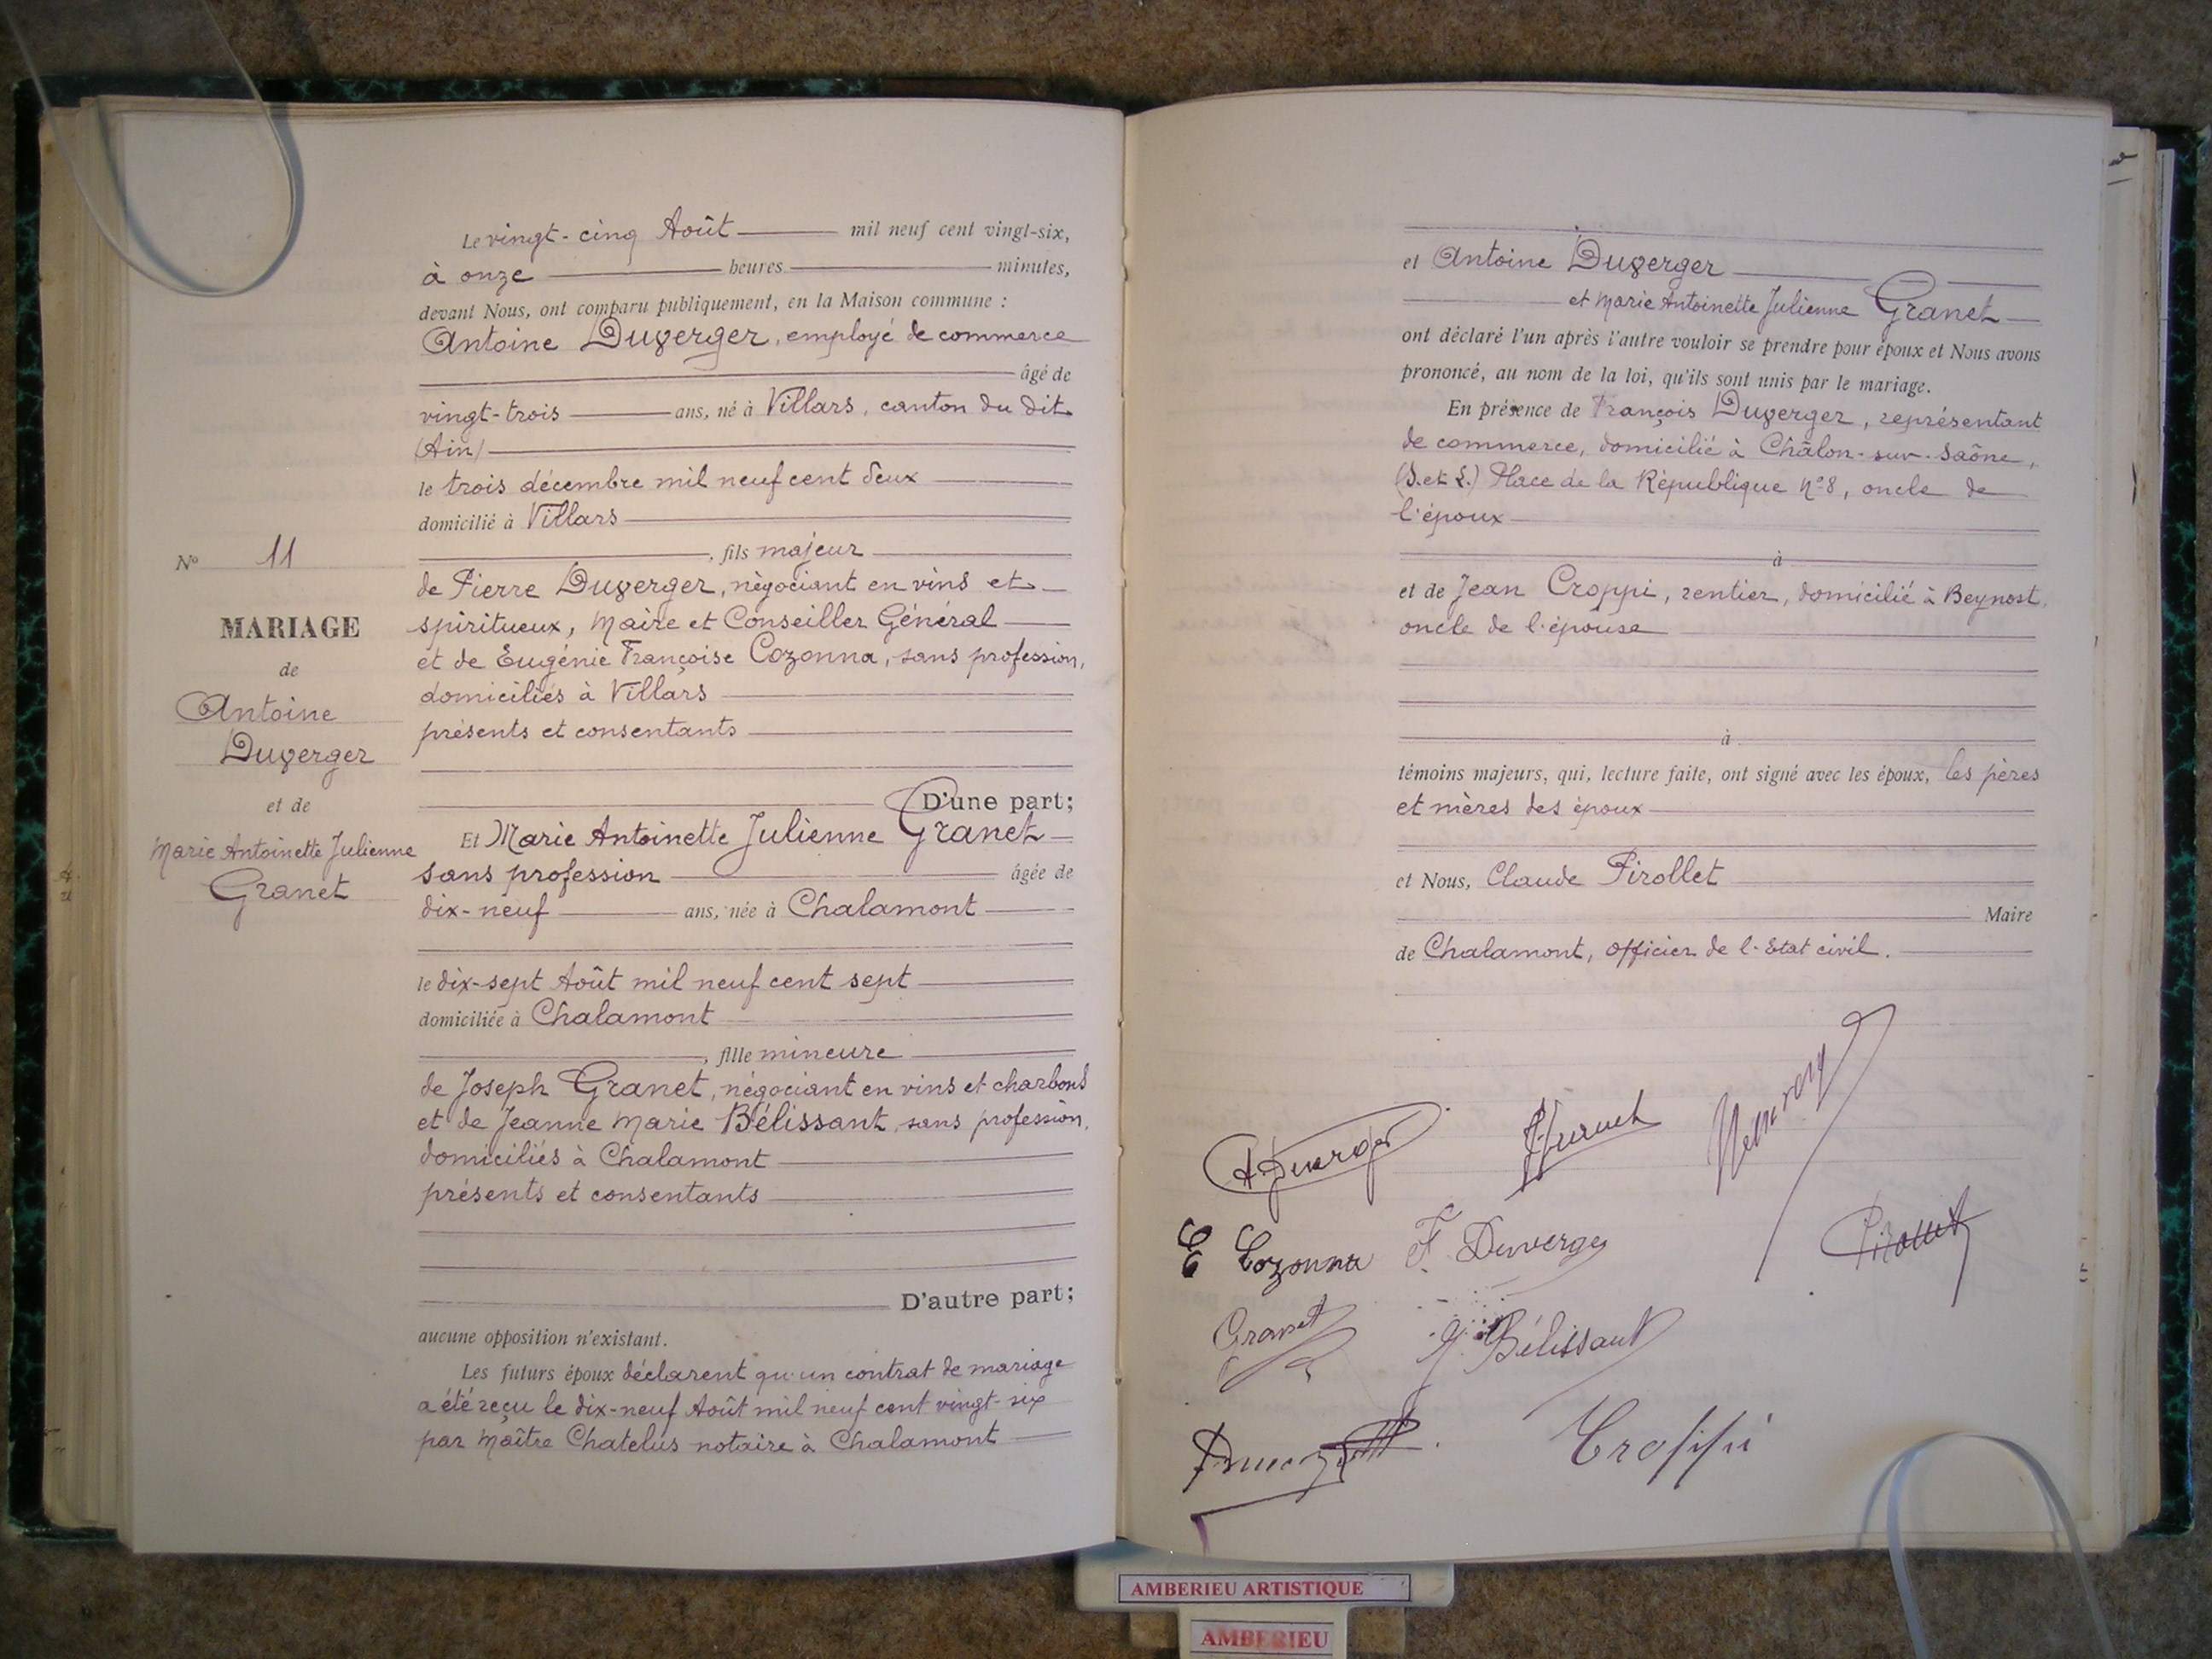 Le vingt-cinq Août mil neuf cent vingt-six,
à onze heures minutes,
devant Nous, ont comparu publiquement, en la Maison commune :
Antoine Duverger, employé de commerce
âgé de
vingt-trois ans, né à Villars, canton du dit
(Ain)
le trois décembre mil neuf cent deux
domicilié à Villars
, fils majeur
de Pierre Duverger, négociant en vins et
spiritueux, Maire et Conseiller Général
et de Eugénie Françoise Cozonna, sans profession,
domiciliés à Villars
présents et consentants
D'une part;
Et Marie Antoinette Julienne Granet
sans profession âgée de
dix-neuf ans, née à Chalamont
le dix-sept Août mil neuf cent sept
domiciliée à Chalamont
, fille mineure
de Joseph Granet, négociant en vins et charbons
et de Jeanne Marie Bélissant, sans profession,
domiciliés à Chalamont
présents et consentants
D'autre part;
aucune opposition n'existant.
Les futurs époux déclarent qu'un contrat de mariage
a été reçu le dix-neuf Août mil neuf cent vingt-six
par Maître Chatelus notaire à Chalamont
N° 11
MARIAGE
de
Antoine
Duverger
et de
Marie Antoinette Julienne
Granet
et Antoine Duverger
et Marie Antoinette Julienne Granet
ont déclaré l'un après l'autre vouloir se prendre pour époux et Nous avons
prononcé, au nom de la loi, qu'ils sont unis par le mariage.
En présence de François Duverger, représentant
de commerce, domicilié à Châlon-sur-Saône,
(S. et L.) Place de la République n° 8, oncle de
l'époux
à
et de Jean Croppi, rentier, domicilié à Beynost,
oncle de l'épouse
à
témoins majeurs, qui, lecture faite, ont signé avec les époux, les pères
et mères des époux
et Nous, Claude Pirollet
Maire
de Chalamont, officier de l'Etat civil.
A. Duverger
E Cozonna F. Duverger
Granet Bélissant
Croppi
AMBERIEU ARTISTIQUE
AMBERIEU